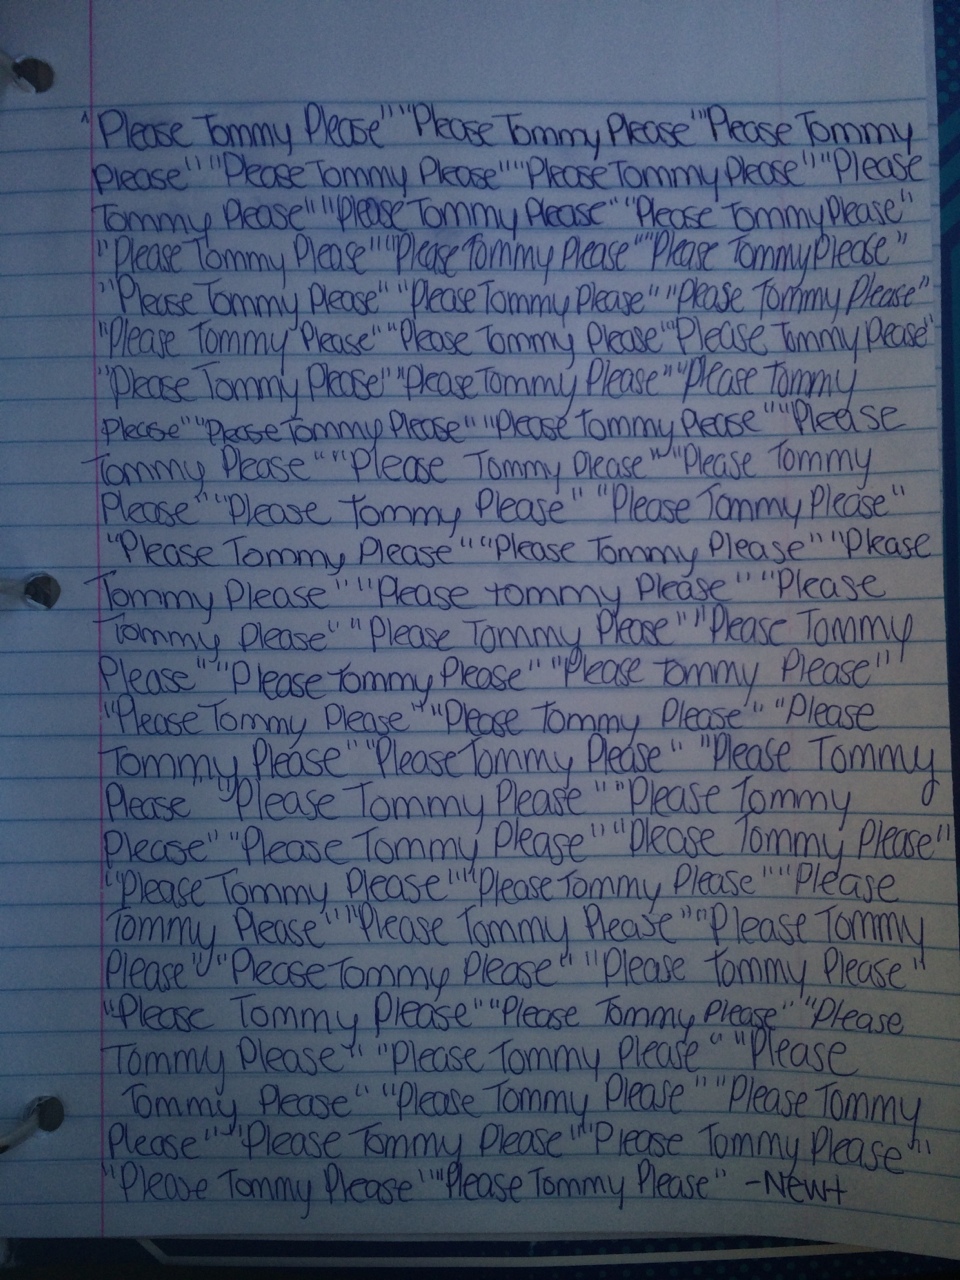 "Please Tommy Please" "Please Tommy Please" "Please Tommy
Please" "Please Tommy Please" "Please Tommy Please" "Please
Tommy Please" "Please Tommy Please" "Please Tommy Please"
"Please Tommy Please" "Please Tommy Please" "Please Tommy Please"
"Please Tommy Please" "Please Tommy Please" "Please Tommy Please"
"Please Tommy Please" "Please Tommy Please" "Please Tommy Please"
"Please Tommy Please" "Please Tommy Please" "Please Tommy
Please" "Please Tommy Please" "Please Tommy Please" "Please
Tommy Please" "Please Tommy Please" "Please Tommy
Please" "Please Tommy Please" "Please Tommy Please"
"Please Tommy Please" "Please Tommy Please" "Please
Tommy Please" "Please tommy Please" "Please
Tommy Please" "Please Tommy Please" "Please Tommy
Please" "Please Tommy Please" "Please Tommy Please"
"Please Tommy Please" "Please Tommy Please" "Please
Tommy Please" "Please Tommy Please" "Please Tommy
Please" "Please Tommy Please" "Please Tommy
Please" "Please Tommy Please" "Please Tommy Please"
"Please Tommy Please" "Please Tommy Please" "Please
Tommy Please" "Please Tommy Please" "Please Tommy
Please" "Please Tommy Please" "Please Tommy Please"
"Please Tommy Please" "Please Tommy Please" "Please
Tommy Please" "Please Tommy Please" "Please
Tommy Please" "Please Tommy Please" "Please Tommy
Please" "Please Tommy Please" "Please Tommy Please"
"Please Tommy Please" "Please Tommy Please" -Newt